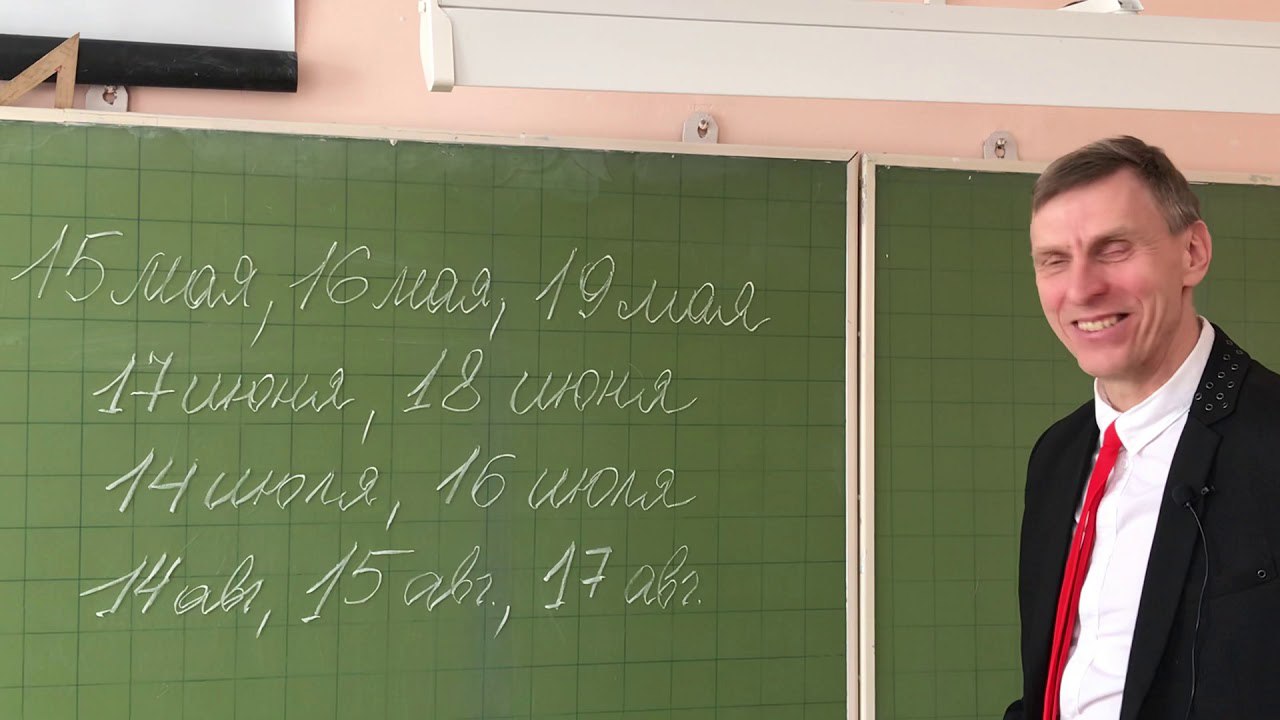 15 мая, 16 мая, 19 мая
17 июня, 18 июня
14 июля, 16 июля
14 авг, 15 авг., 17 авг.